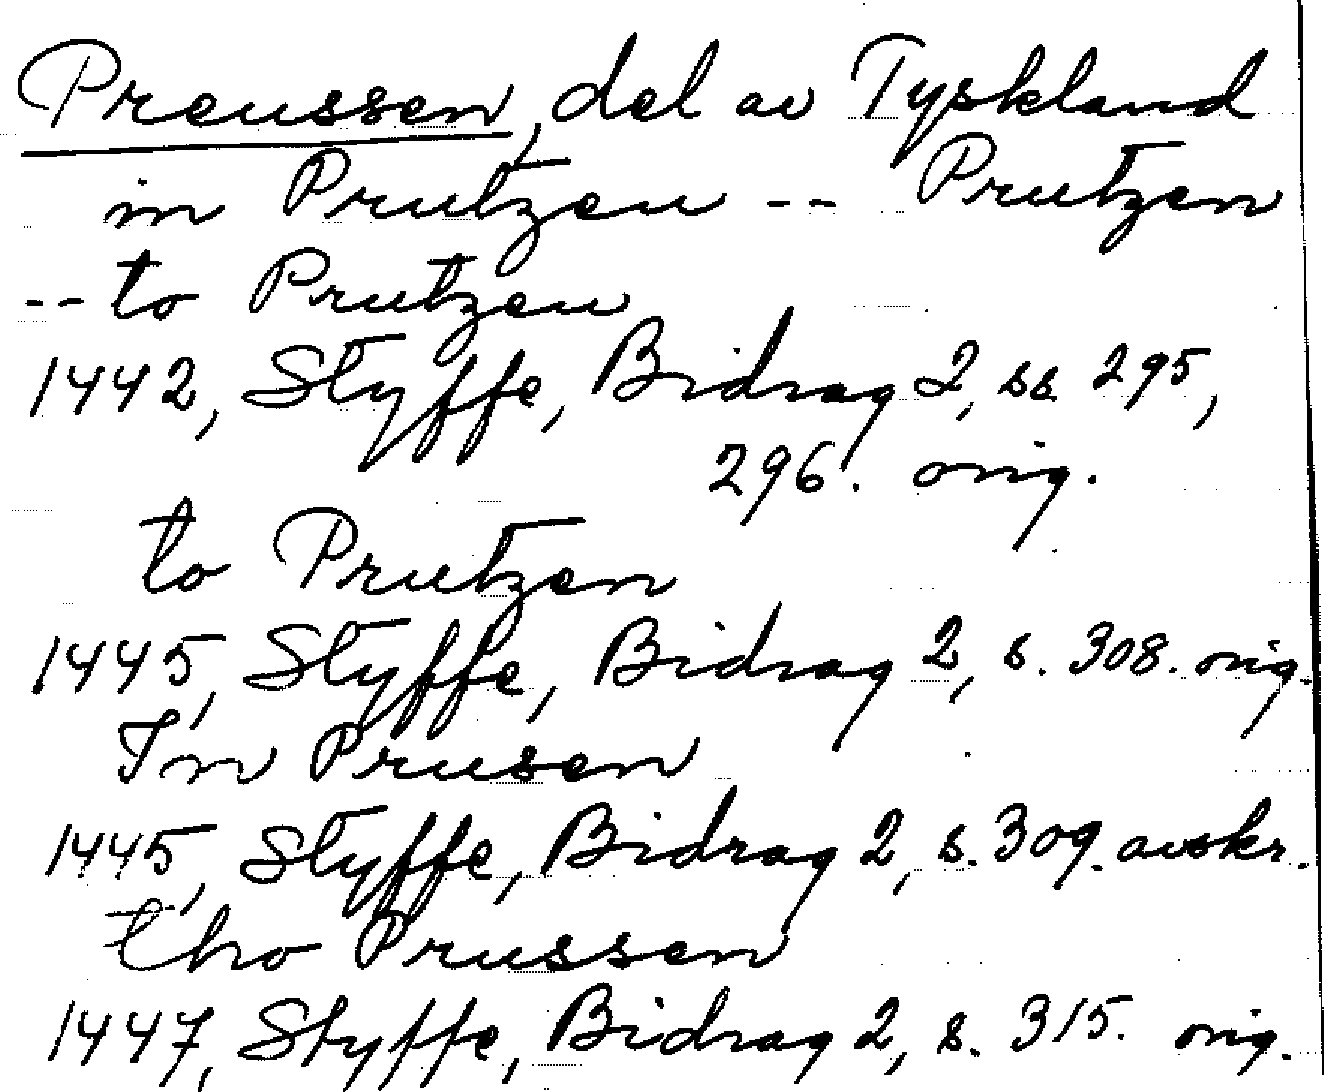 Preussen, del av Tyskland
in Prutzen -- Prutzen
-- to Prutzen
1442, Styffe, Bidrag 2, ss. 295,
296. orig.
to Prutzen
1445, Styffe, Bidrag 2, s. 308. orig.
In Prusen
1445, Styffe, Bidrag 2, s. 309. avskr.
tho Prussen
1447, Styffe, Bidrag 2, s. 315. orig.